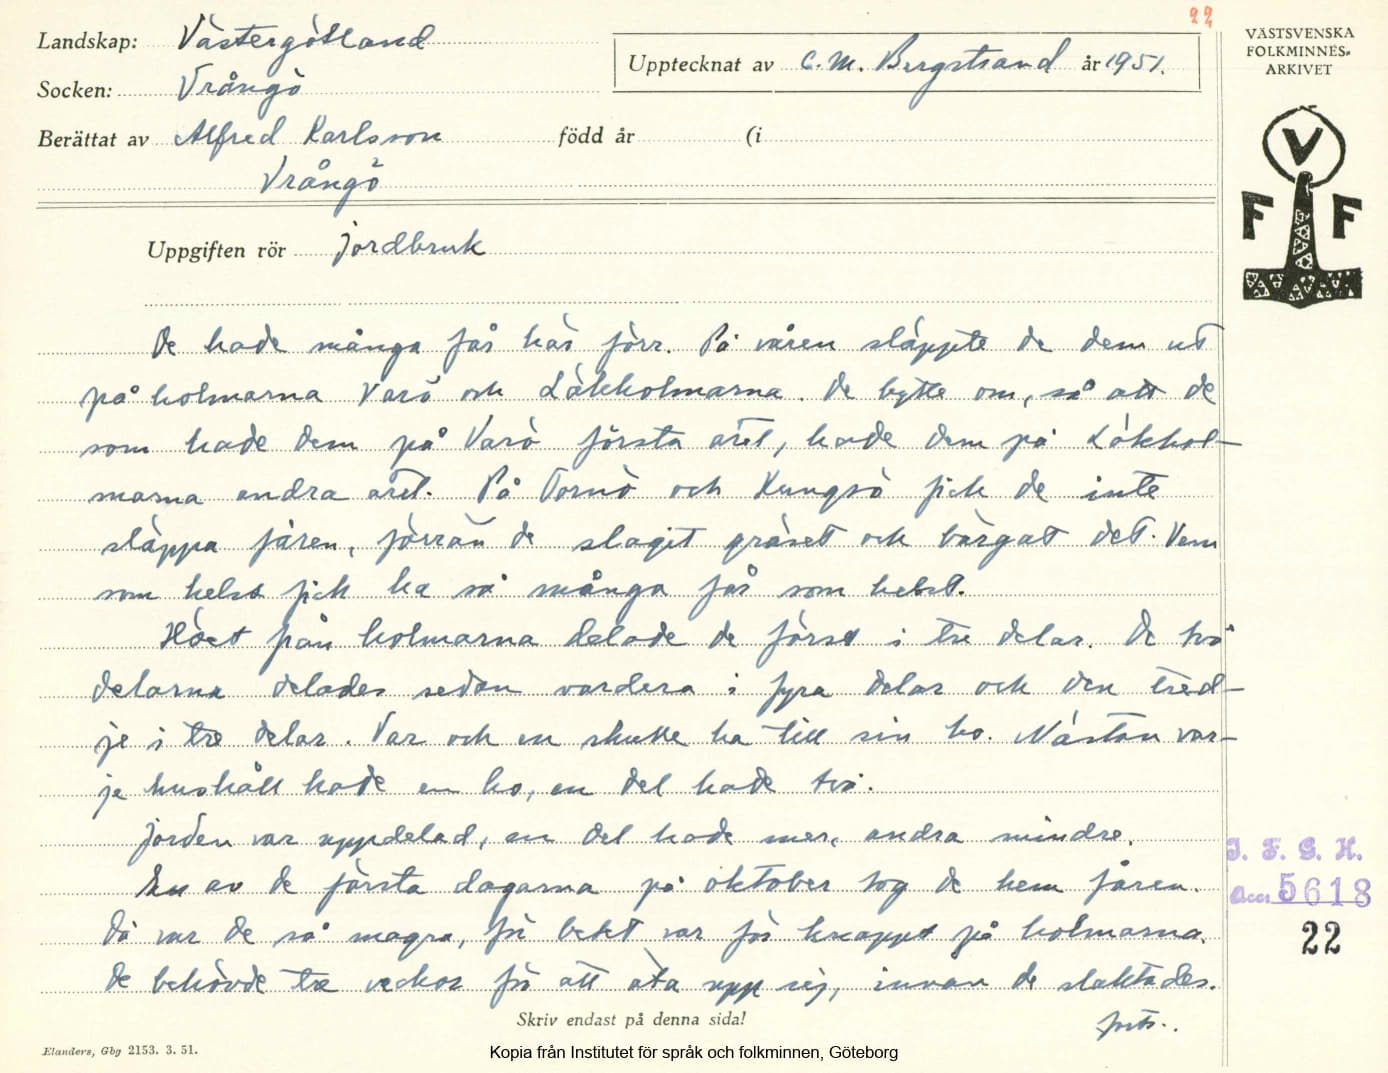 22
Landskap: Västergötland
Socken: Vrångö
Upptecknat av C. M. Bergstrand år 1951.
Berättat av Alfred Karlsson född år (i
Vrångö
Uppgiften rör jordbruk
VÄSTSVENSKA
FOLKMINNES-
ARKIVET
V
F F
De hade många får här förr. På våren släppte de dem ut
på holmarna Varö och Lökholmarna. De bytte om, så att de
som hade dem på Varö första året, hade dem på Lökhol-
marna andra året. På Tornö och Kungsö fick de inte
släppa fåren, förrän de slagit gräset och bärgat det. Vem
som helst fick ha så många får som helst.
Höet från holmarna delade de först i tre delar. De två
delarna delades sedan vardera i fyra delar och den tred-
je i tre delar. Var och en skulle ha till sin ko. Nästan var-
je hushåll hade en ko, en del hade två.
Jorden var uppdelad, en del hade mer, andra mindre.
En av de första dagarna på oktober tog de hem fåren.
Då var de så magra, för betet var för knappt på holmarna.
De behövde tre veckor för att äta upp sig, innan de slaktades.
forts.
I. F. G. H.
Acc. 5618
22
Skriv endast på denna sida!
Elanders, Gbg 2153. 3. 51.
Kopia från Institutet för språk och folkminnen, Göteborg